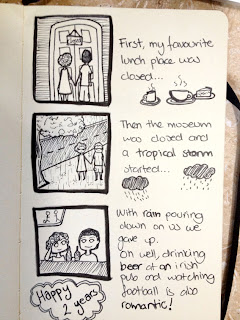 First, my favourite
lunch place was
closed...
Then the museum
was closed and
a tropical storm
started...
With rain pouring
down on us we
gave up.
Oh well, drinking
beer at an irish
pub and watching
football is also
romantic!
Happy
2 years